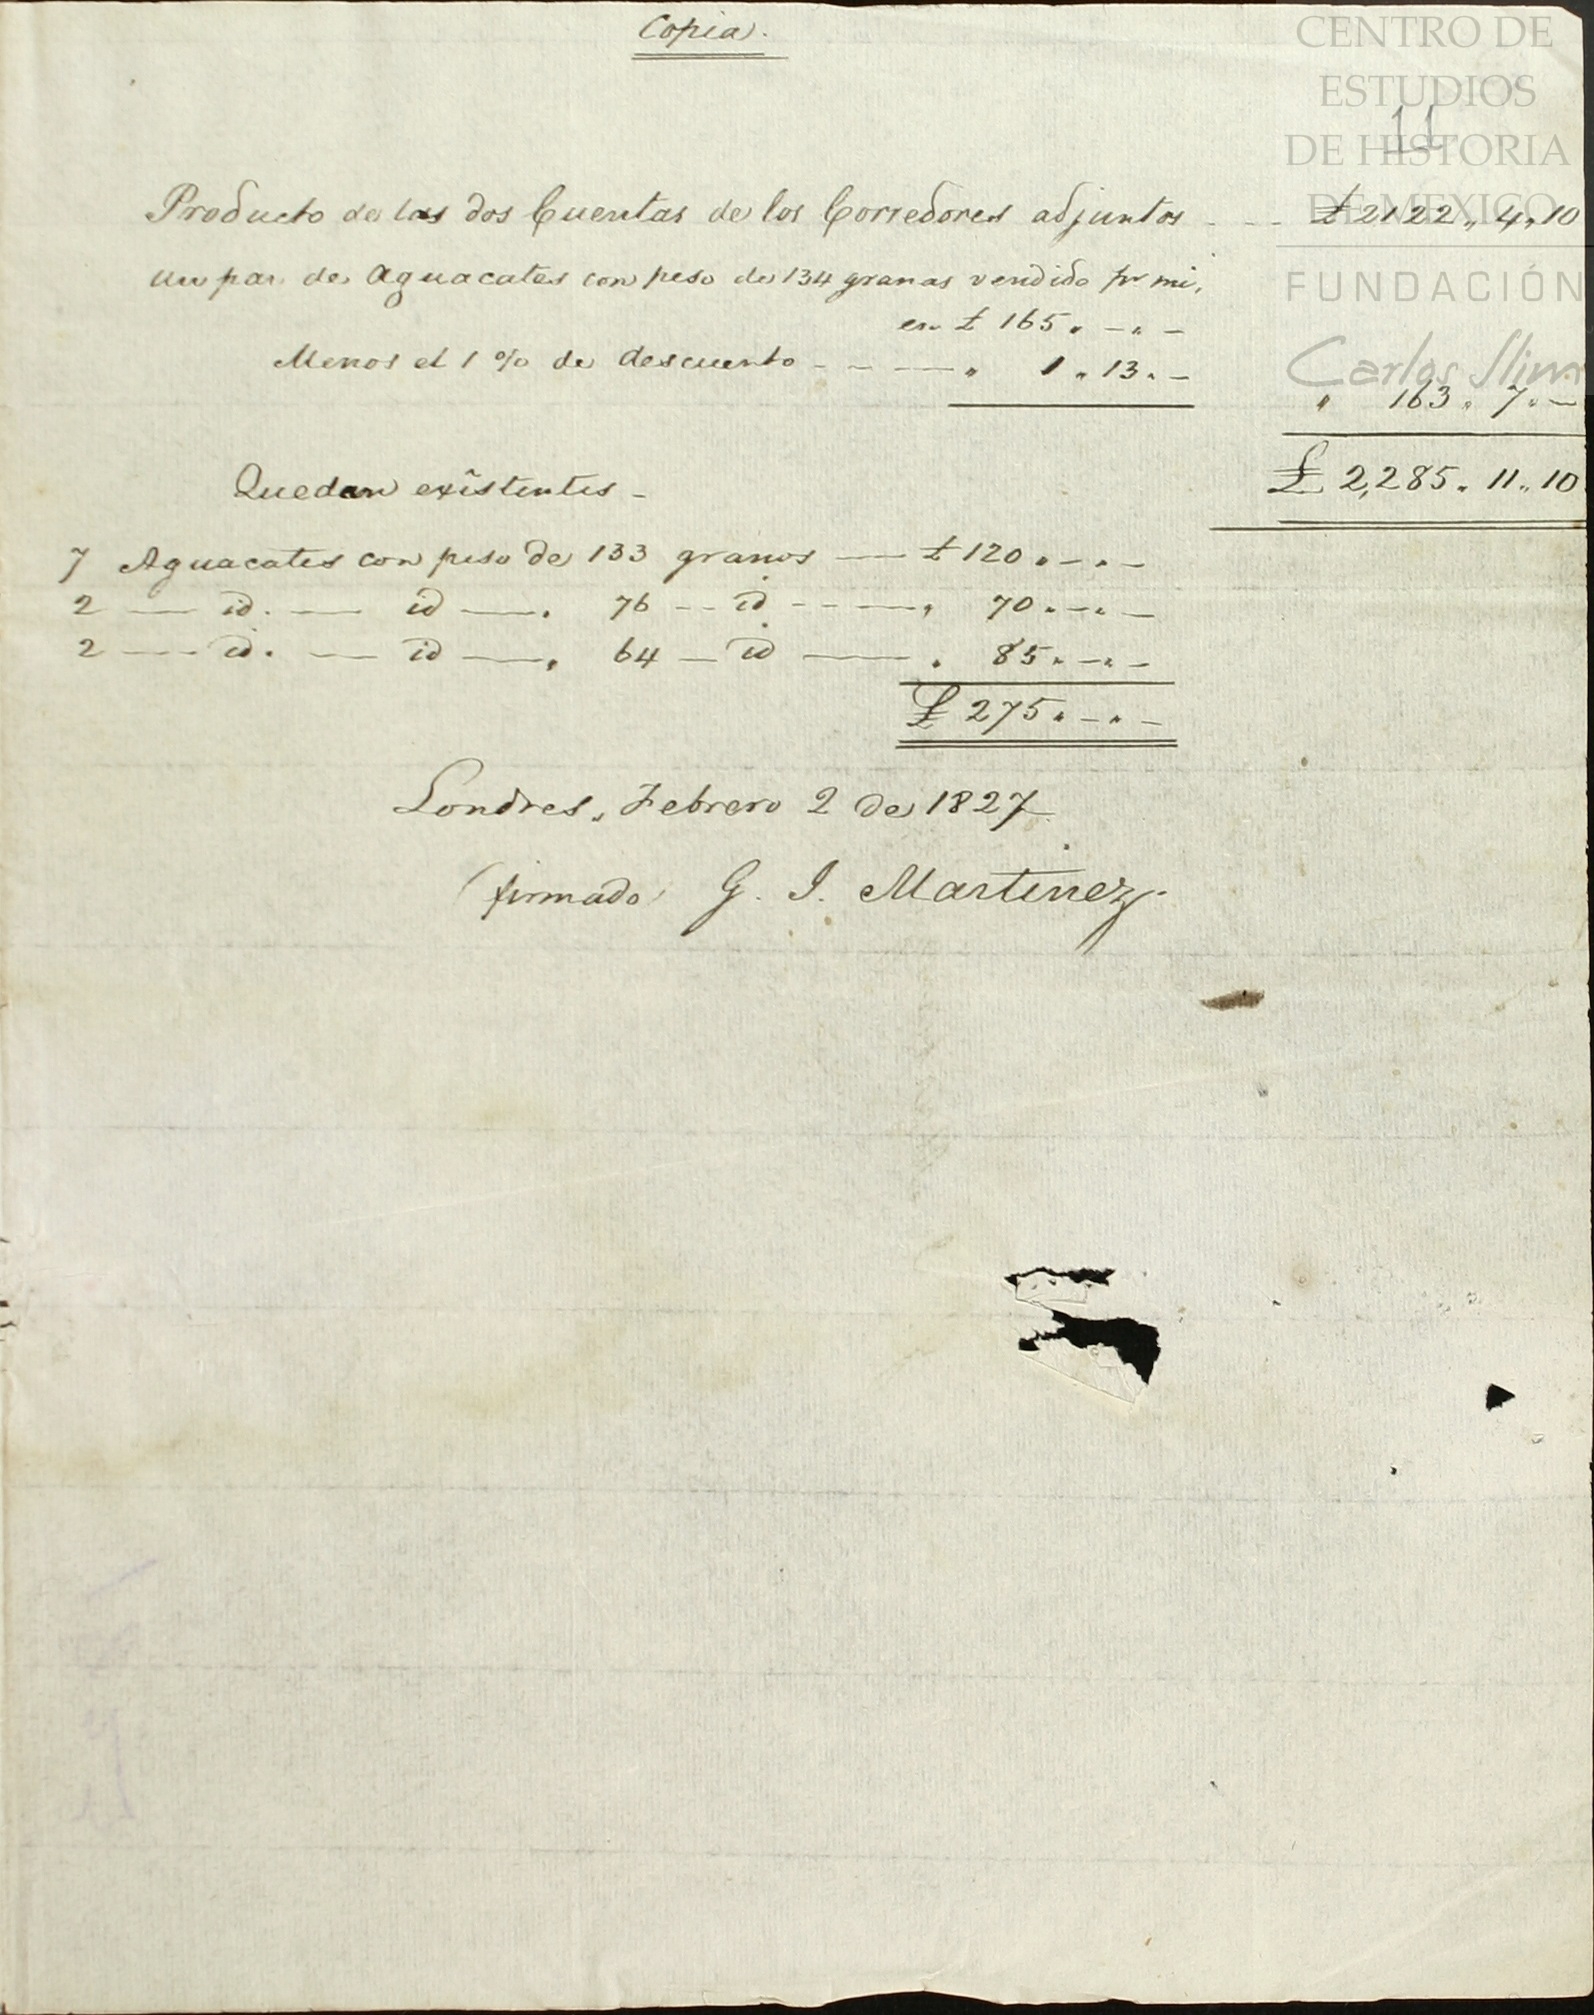 Copia.
CENTRO DE
ESTUDIOS
11
DE HISTORIA
DE MEXICO
Producto de las dos Cuentas de los Corredores adjuntos . . - - £ 2122 „ 4 „ 10
FUNDACIÓN
Un par de Aguacates con peso de 134 granos vendido pr mi,
en £ 165 „ - „ -
Carlos Slim
Menos el 1 % de descuento - - - - „ 1 „ 13 „ -
„ 163 „ 7 „ -
£ 2,285 „ 11 „ 10
Quedan existentes -
7 Aguacates con peso de 133 granos — £ 120 „ - „ -
2 — id. — id — „ 76 - - id - - - - „ 70 „ - „ -
2 — id. — id — „ 64 — id — „ 85 „ - „ -
£ 275 „ - „ -
Londres, Febrero 2 de 1827
(firmado) G. I. Martinez.